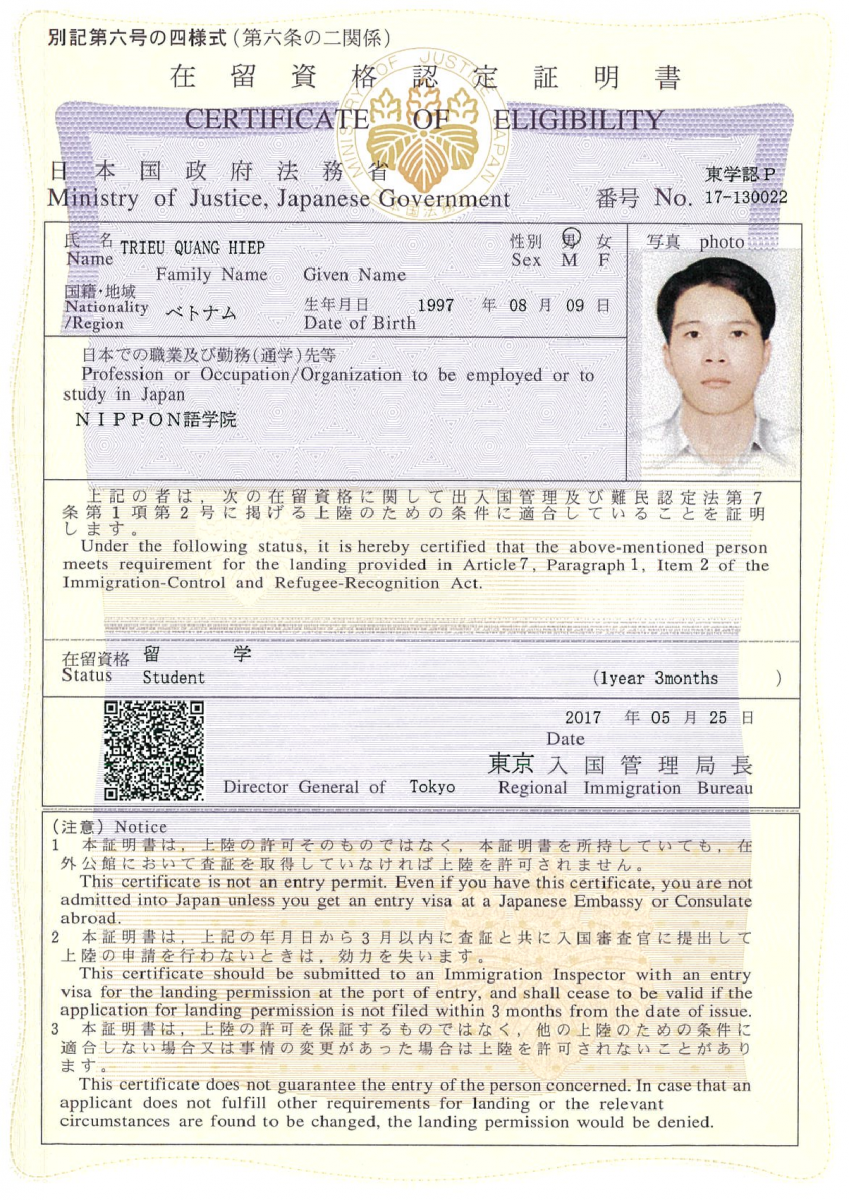 別記第六号の四様式(第六条の二関係)
在留資格認定証明書
CERTIFICATE OF ELIGIBILITY
日本国政府法務省
東学認P
Ministry of Justice, Japanese Government 番号 No. 17-130022
氏名 TRIEU QUANG HIEP 性別 男 女 写真 photo
Name Family Name Given Name Sex M F
国籍・地域 生年月日 1997 年 08 月 09 日
Nationality ベトナム
/Region Date of Birth
日本での職業及び勤務(通学)先等
Profession or Occupation/Organization to be employed or to
study in Japan
NIPPON語学院
上記の者は,次の在留資格に関して出入国管理及び難民認定法第7
条第1項第2号に掲げる上陸のための条件に適合していることを証明
します。
Under the following status, it is hereby certified that the above-mentioned person
meets requirement for the landing provided in Article 7, Paragraph 1, Item 2 of the
Immigration-Control and Refugee-Recognition Act.
在留資格 留学
Status Student (1year 3months )
2017 年 05 月 25 日
Date
東京入国管理局長
Director General of Tokyo Regional Immigration Bureau
(注意) Notice
1 本証明書は,上陸の許可そのものではなく,本証明書を所持していても,在
外公館において査証を取得していなければ上陸を許可されません。
This certificate is not an entry permit. Even if you have this certificate, you are not
admitted into Japan unless you get an entry visa at a Japanese Embassy or Consulate
abroad.
2 本証明書は,上記の年月日から3月以内に査証と共に入国審査官に提出して
上陸の申請を行わないときは,効力を失います。
This certificate should be submitted to an Immigration Inspector with an entry
visa for the landing permission at the port of entry, and shall cease to be valid if the
application for landing permission is not filed within 3 months from the date of issue.
3 本証明書は,上陸の許可を保証するものではなく,他の上陸のための条件に
適合しない場合又は事情の変更があった場合は上陸を許可されないことがあり
ます。
This certificate does not guarantee the entry of the person concerned. In case that an
applicant does not fulfill other requirements for landing or the relevant
circumstances are found to be changed, the landing permission would be denied.